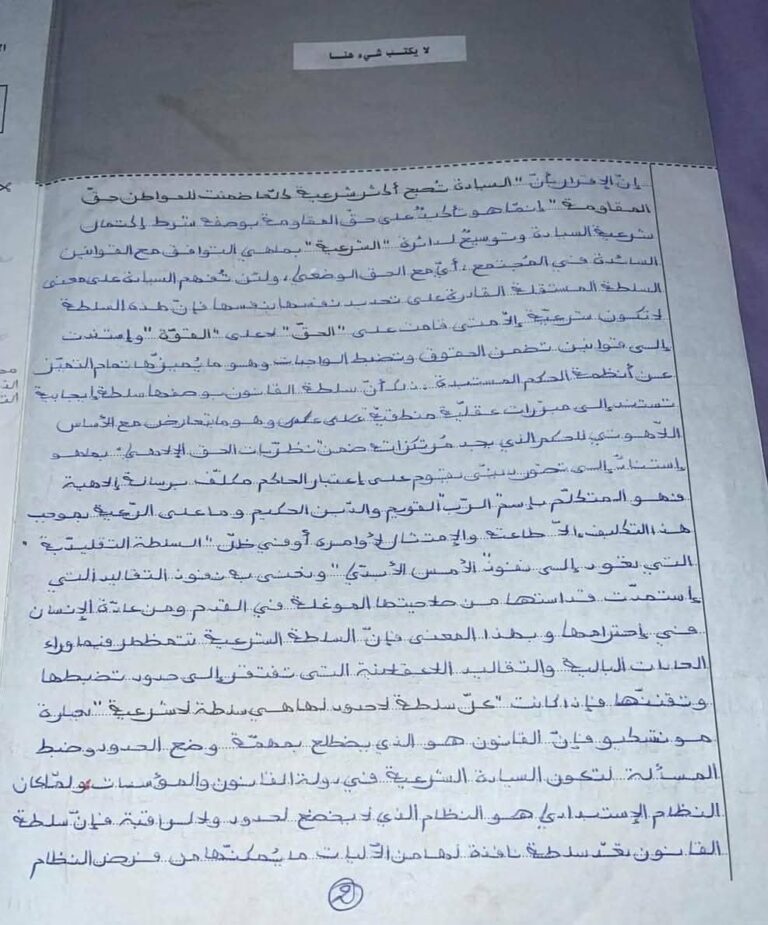 لا يكتب شيء هنا
إنّ الإقرار بأنّ "السيادة تصبح أكثر شرعية كلّما ضمنت للمواطن حقّ
المقاومة" إنّما هو تأكيدٌ على حقّ المقاومة بوصفه شرط إكتمال
شرعية السيادة وتوسيعٌ لدائرة "الشرعية" بما هي التوافق مع القوانين
السائدة في المُجتمع، أي مع الحق الوضعي، ولئن تُفهم السيادة على معنى
السلطة المستقلة القادرة على تحديد نفسها بنفسها فإنّ هذه السلطة
لا تكون شرعيّة إلاّ متى قامت على "الحقّ" لا على "القوّة" وإستندت
إلى قوانين تضمن الحقوق وتضبط الواجبات وهو ما يُميّزها تمام التميّز
عن أنظمة الحكم المستبدة. ذلك أنّ سلطة القانون بوصفها سلطة إيجابية
تستند إلى مبرّرات عقليّة منطقية وهو ما يتعارض مع الأساس
اللاّهوتي للحكم الذي يجد مُرتكزاته ضمن نظريّات الحق الإلاهي بما هو
إستنادٌ إلى تصوّر ديني يقوم على إعتبار الحاكم مكلّف برسالة إلاهية
فهو المتكلّم بإسم الرّبّ القويم والدّين الحكيم وما على الرّعية بموجب
هذا التكليف إلاّ طاعته والإمتثال لأوامره أو في ظلّ "السلطة التقليديّة
التي تعود إلى نفوذ الأمس الأبديّ" ونعني به نفوذ التقاليد التي
إستمدّت قداستها من صلاحيتها الموغلة في القدم ومن عادة الإنسان
في إحترامها وبهذا المعنى فإنّ السلطة الشرعية تتمظهر فيما وراء
العادات البالية والتقاليد اللاعقلانية التي تفتقر إلى حدود تضبطها
وتقننّها فإذا كانت "كلّ سلطة لا حدود لها هي سلطة لا شرعية" بعبارة
مونتسكيو فإنّ القانون هو الذي يضطلع بمهمّة وضع الحدود وضبط
المسألة لتكون السيادة الشرعية في دولة القانون والمؤسسات ولمّا كان
النظام الإستبدادي هو النظام الذي لا يخضع لحدود ولا لمراقبة فإنّ سلطة
القانون تعدّ سلطة نافذة لها من الآليات ما يُمكّنها من فرض النظام
2